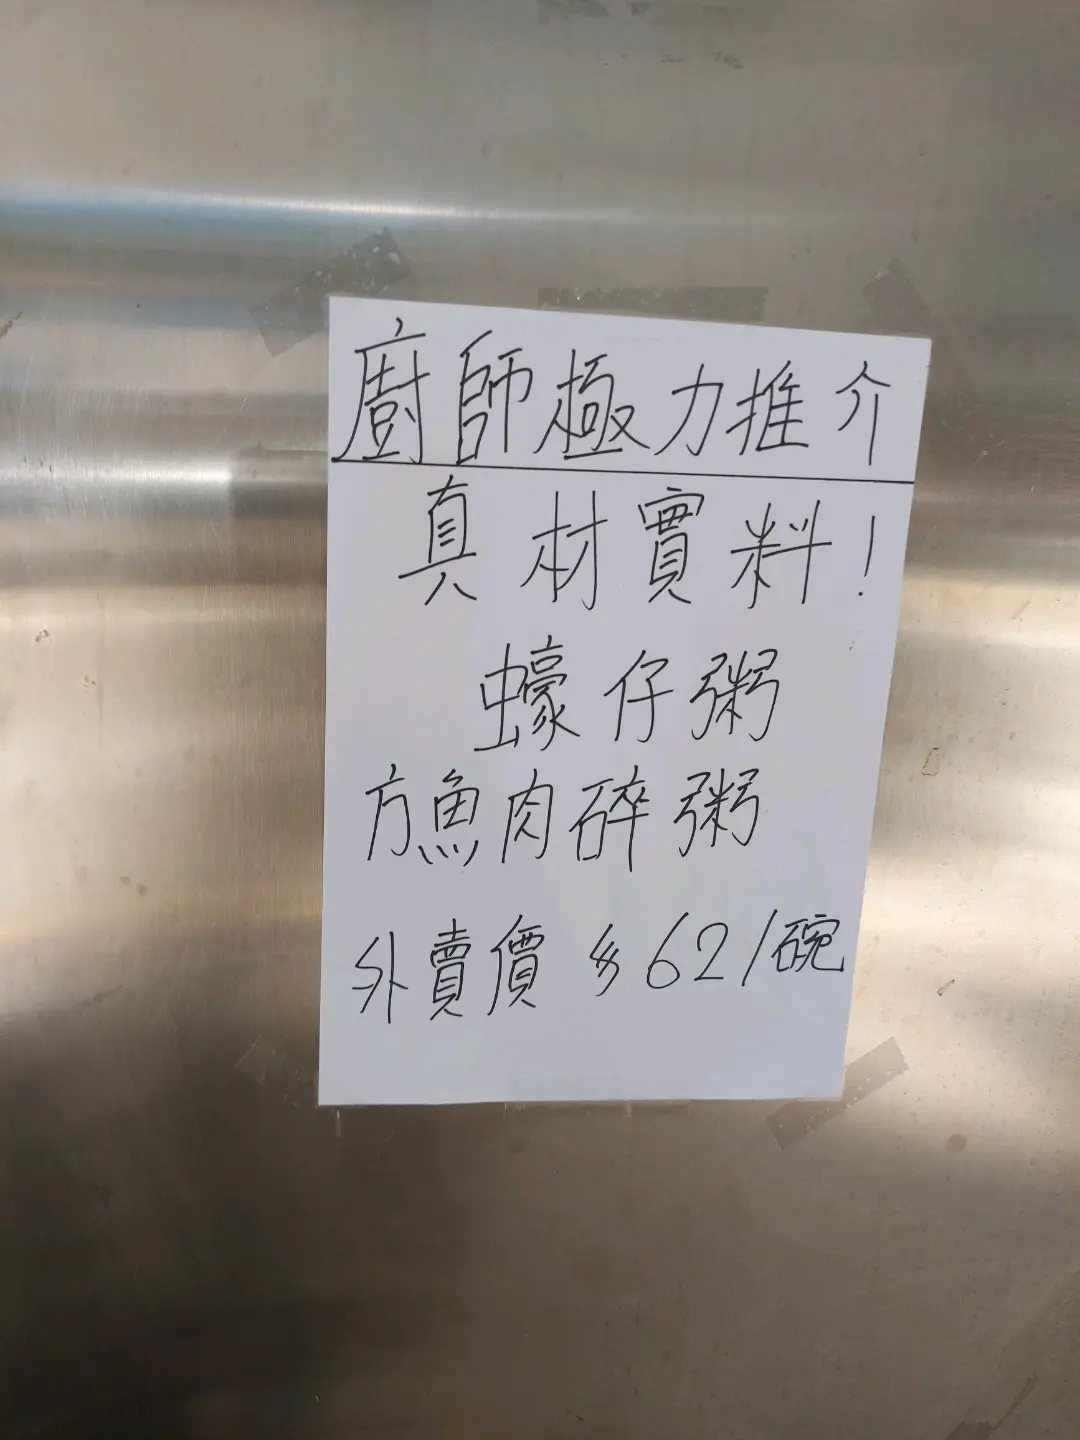 廚師極力推介
真材實料!
蠔仔粥
方魚肉碎粥
外賣價 $62/碗